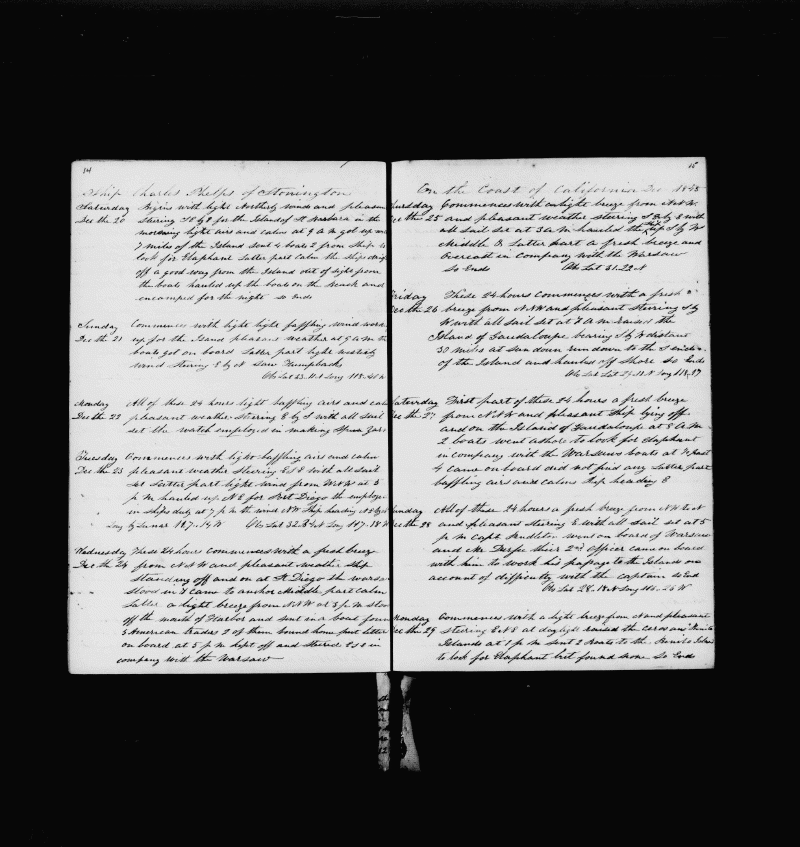 14
Ship Charles Phelps of Stonington
Saturday Begins with light Northerly winds and pleasant
Dec the 20 steering S E by E for the Island of St Barbara in the
morning light airs and calm at 9 A M got up
7 miles of the Island sent 4 boats 2 from ship to
look for Elaphant Latter part calm the ships
off a good way from the Island out of sight from
the boats hauled up the boats on the beach and
encamped for the night so Ends
Sunday Commences with light baffling wind
Dec the 21 up for the Island pleasant weather at 9 A M the
boats got on board Latter part light westerly
wind steering E by N saw Humpbacks
Ob Lat 33-11 Long 118-40 W
Monday All of these 24 hours light baffling airs and calm
Dec the 22 pleasant weather Steering E by S with all sail
set the watch employed in making Spun Yarn
Tuesday Commences with light baffling airs and calm
Dec the 23 pleasant weather Steering E S E with all sail
set Latter part light wind from W N W at 5
P M hauled up N E for Port Diego the
in ships duty at 7 P M the wind N W Ship heading
Long by Lunar 117-14 W Ob Lat 32 Long 117-18 W
Wednesday These 24 hours Commences with a fresh breeze
Dec the 24 from N N W and pleasant weather ship
standing off and on at St Diego the warsaw
stood in & came to anchor Middle part calm
Latter a light breeze from N N W at 3 P M stood
off the mouth of Harbor and sent in a boat found
5 American trades 2 of them bound home put letter
on board at 5 P M kept off and steered E S E in
company with the Warsaw
15
On the Coast of California Dec 1845
Thursday Commences with a light breeze from N N W
Dec the 25 and pleasant weather steering S E by E with
all sail set at 3 A M hauled the ship S by W
Middle & Latter part a fresh breeze and
overcast in Company with the Warsaw
So Ends Ob Lat 31-22 N
Friday These 24 hours Commences with a fresh
Dec the 26 breeze from N N W and pleasant Steering S by
W with all sail set at 7 A M raised the
Island of Gaudaloupe bearing S by W distant
30 miles at sun down run down to the S end
of the Island and hauled off Shore So Ends
Ob Lat 29-11 N Long 118-17
Saturday First part of these 24 hours a fresh breeze
Dec the 27 from N N W and pleasant Ship lying off
and on the Island of Gaudaloupe at 8 A M
2 boats went ashore to look for Elaphant
in company with the Warsaws boats at ½ past
4 came on board did not find any Latter part
baffling airs and calms Ship heading E
Sunday All of these 24 hours a fresh breeze from N W & N
Dec the 28 and pleasant steering E with all sail set at 5
P M Capt Pendleton went on board of Warsaw
and Mr Durfee their 2nd Officer came on board
with him to work his passage to the Islands on
account of difficulty with the captain So End
Ob Lat 28-18 N Long 116-26 W
Monday Commences with a light breeze from N and pleasant
Dec the 29 steering E N E at daylight raised the Ceros and Bonito
Islands at 1 P M sent 2 boats to the Bonito Island
to look for Elaphant but found none So Ends